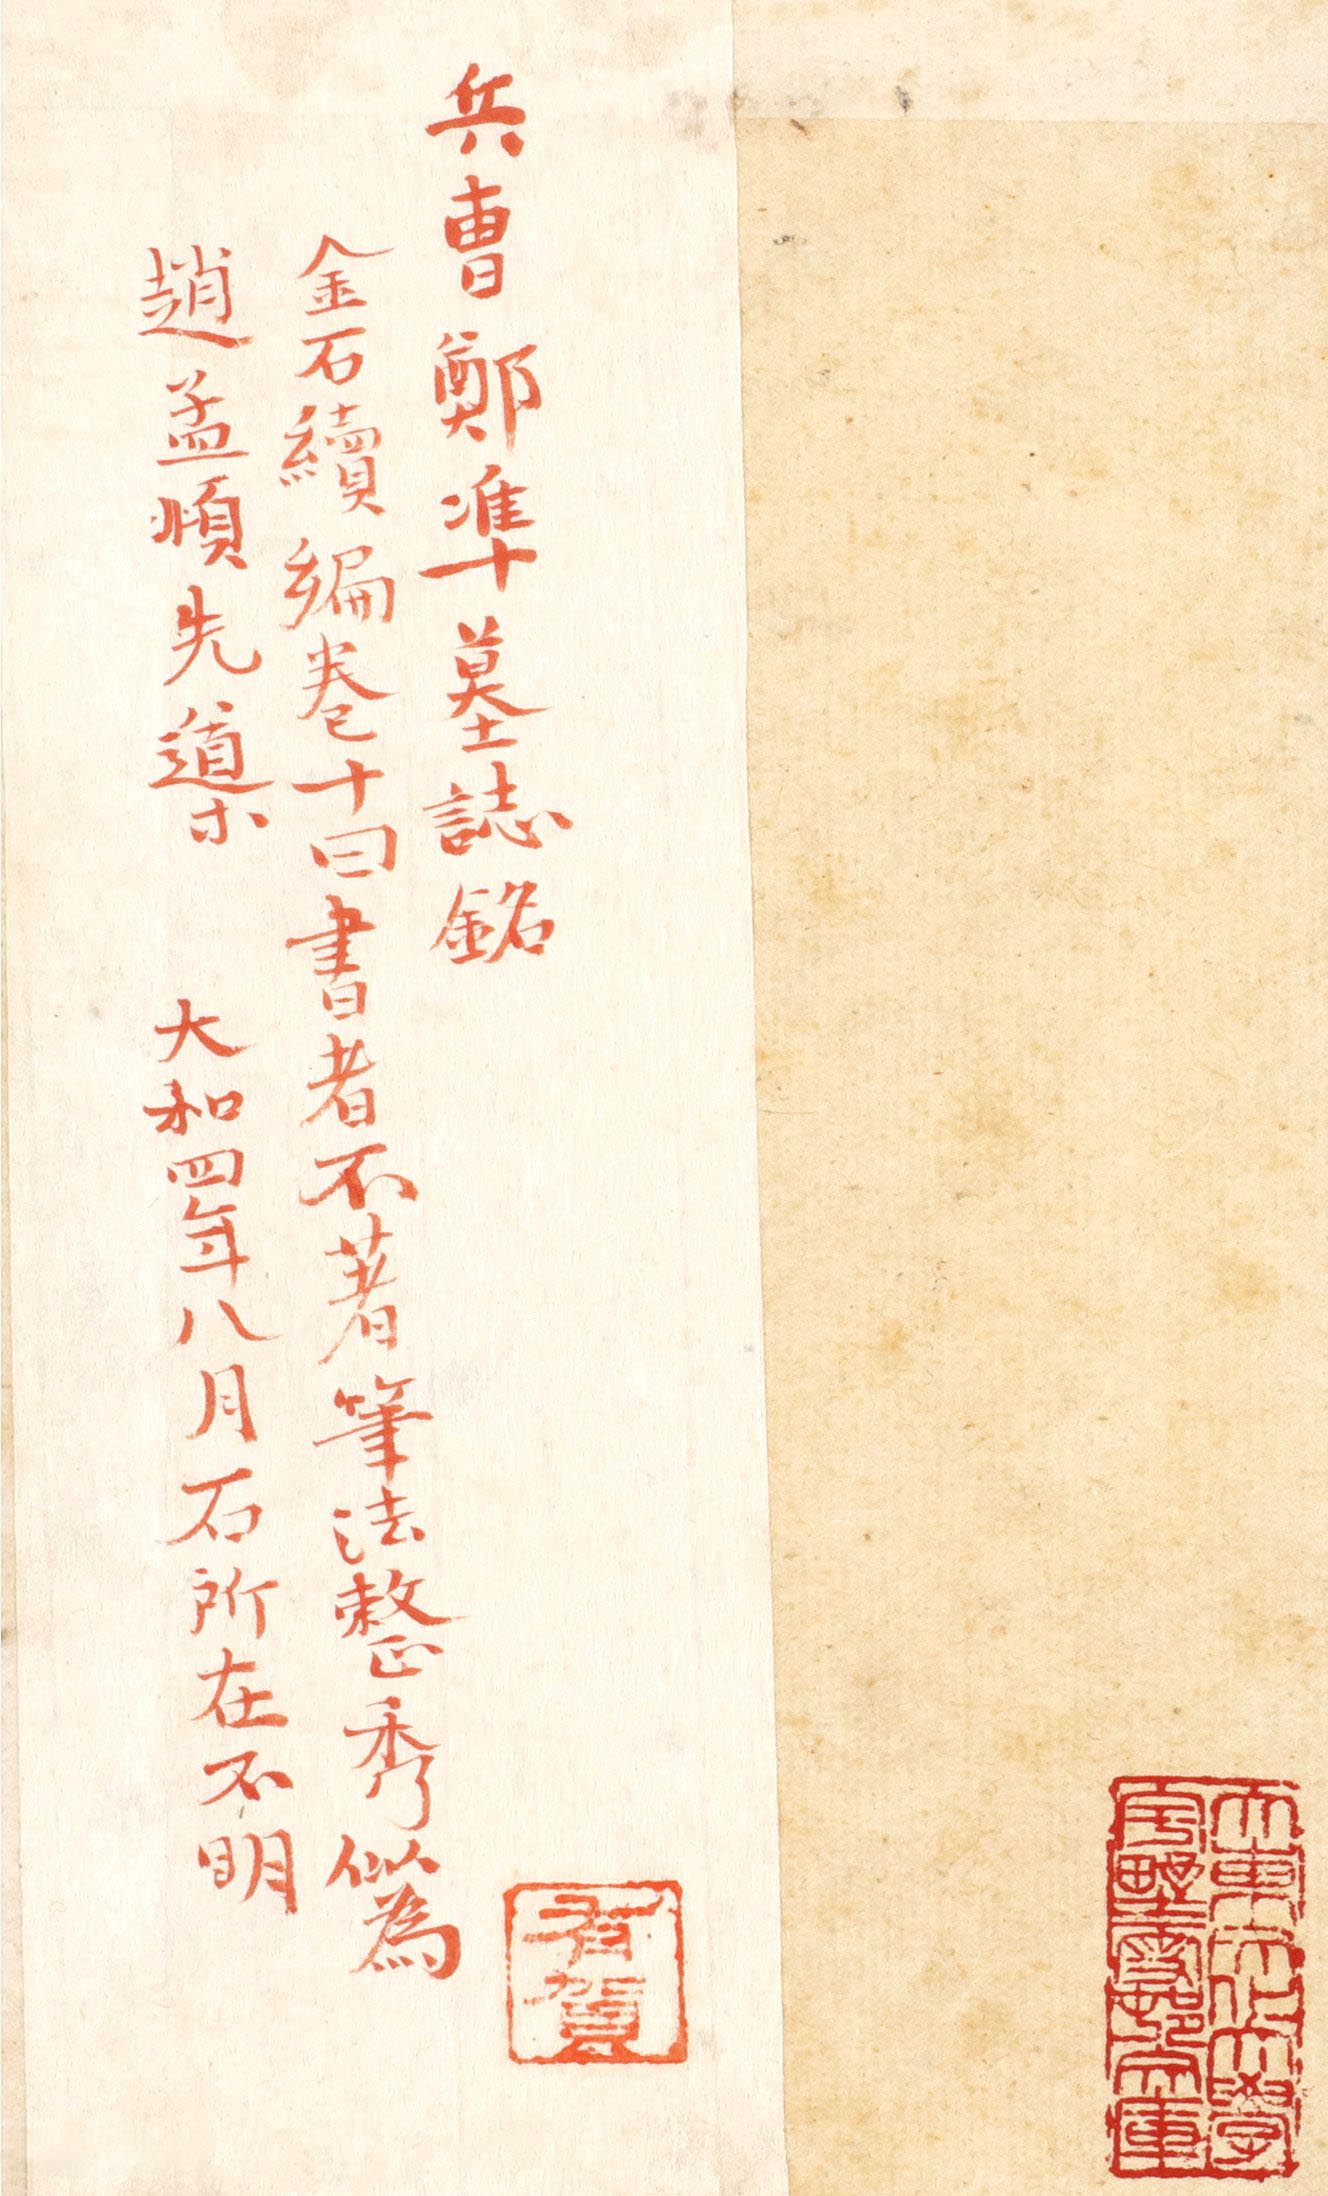 大東文化大學
宇壄雪邨文庫
兵曹鄭凖墓誌銘
有賀
金石續編卷十曰書者不著筆法整秀似為
趙孟順先導 大和四年八月石所在不明